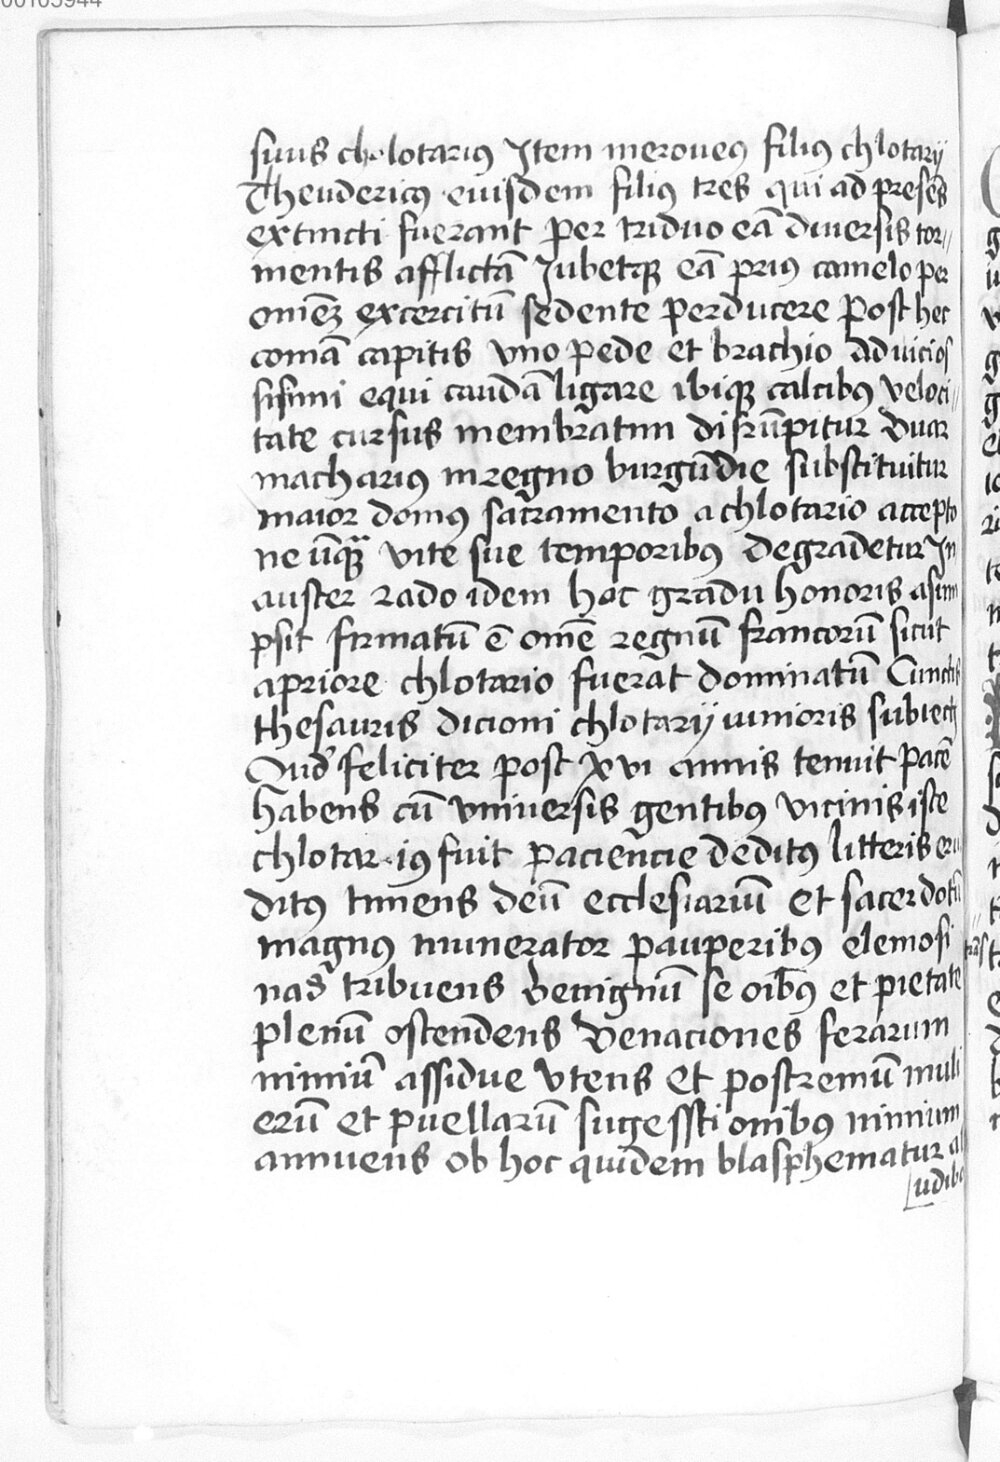 00105944
suus chlotarius Item meroueꝯ filiꝯ chlotarij
Theudericꝯ euisdem filiꝯ tres qui ad presēs
extincti fuerant per triduo eā diuersis tor〃
mentis afflictā Jubetqꝫ eā priꝯ camelo per
omēꝫ excercitū sedente perducere Post hec
comā capitis vno pede et brachio ad uicios
sisimi equi caudā ligare ibiqꝫ calcibꝯ veloci〃
tate cursus membratim disrūpitur Duar
macharius in regno burgūdie substituitur
maior domꝯ sacramento a chlotario accepto
ne ūqꝫ vite sue temporibꝯ degradetur In
auster rado idem hoc gradu honoris asum
psit firmatū ē omē regnū francorū sicut
a priore chlotario fuerat dominatū Cunctis
thesauris dicioni chlotarij iunioris subiectis
Qud feliciter post xvi annis tenuit pacē
habens cū vniuersis gentibꝯ vicinis iste
chlotar iꝯ fuit paciencie deditꝯ litteris eru
ditꝯ timens deū ecclesiariū et sacerdotū
magnꝯ munerator pauperibꝯ elemosi
nas tribuens benignū se oībꝯ et pietate
plenū ostendens venaciones ferarum
nimiū assidue vtens et postremū muli
erū et puellarū sugesstionibꝯ nimium
annuens ob hoc quidem blasphematur a
udibꝯ